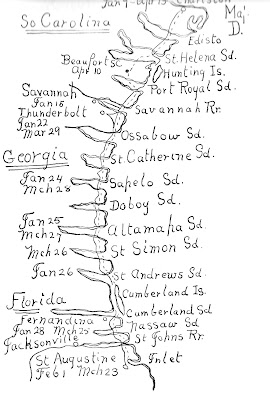 Jan 9 - Apr 13 Charleston
So Carolina
Maj.
D.
Edisto
Beaufort
Apr 10
St. Helena Sd.
Hunting Is.
Port Royal Sd.
Savannah
Jan 15
Thunderbolt
Jan 22
Mar 29
Savannah Rr.
Ossabow Sd.
Georgia
St. Catherine Sd.
Jan 24
Mch 28
Sapelo Sd.
Doboy Sd.
Jan 25
Mch 27
Altamaha Sd
Mch 26
St Simon Sd.
Jan 26
St Andrews Sd.
Cumberland Is.
Florida
Cumberland Sd
Fernandina
Nassaw Sd
Jan 28 Mch 25
St Johns Rr.
Jacksonville
St Augustine
Feb 1 Mch 23
Inlet